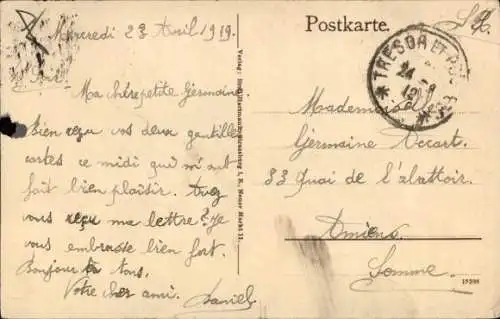 Mercredi 23 Avril 1919.
Ma chère petite Germaine
Bien reçu vos deux gentilles
cartes ce midi qui m'ont
fait bien plaisir. Avez
vous reçu ma lettre? Je
vous embrasse bien fort.
Bonjour à tous.
Votre cher ami.
Daniel
Postkarte.
TRESOR ET
24
Mademoiselle
Germaine
33 Quai de l'abattoir.
Amiens.
Somme.